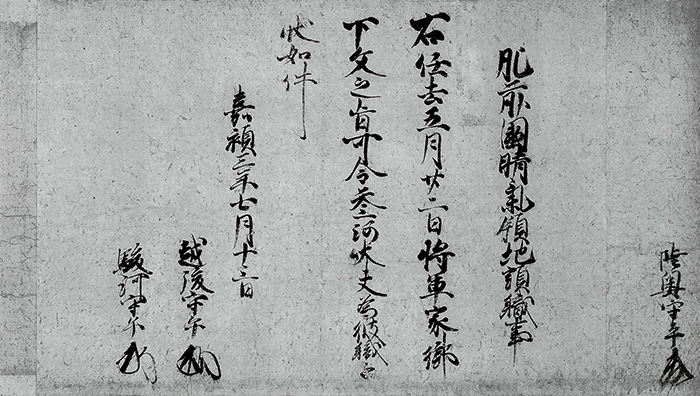 陸奥守平
肥前國晴氣領地頭職事
右任去五月廿二日將軍家御
下文之旨可令参河大夫為彼職之
状如件
嘉禎三年七月十三日
越後守平
駿河守平